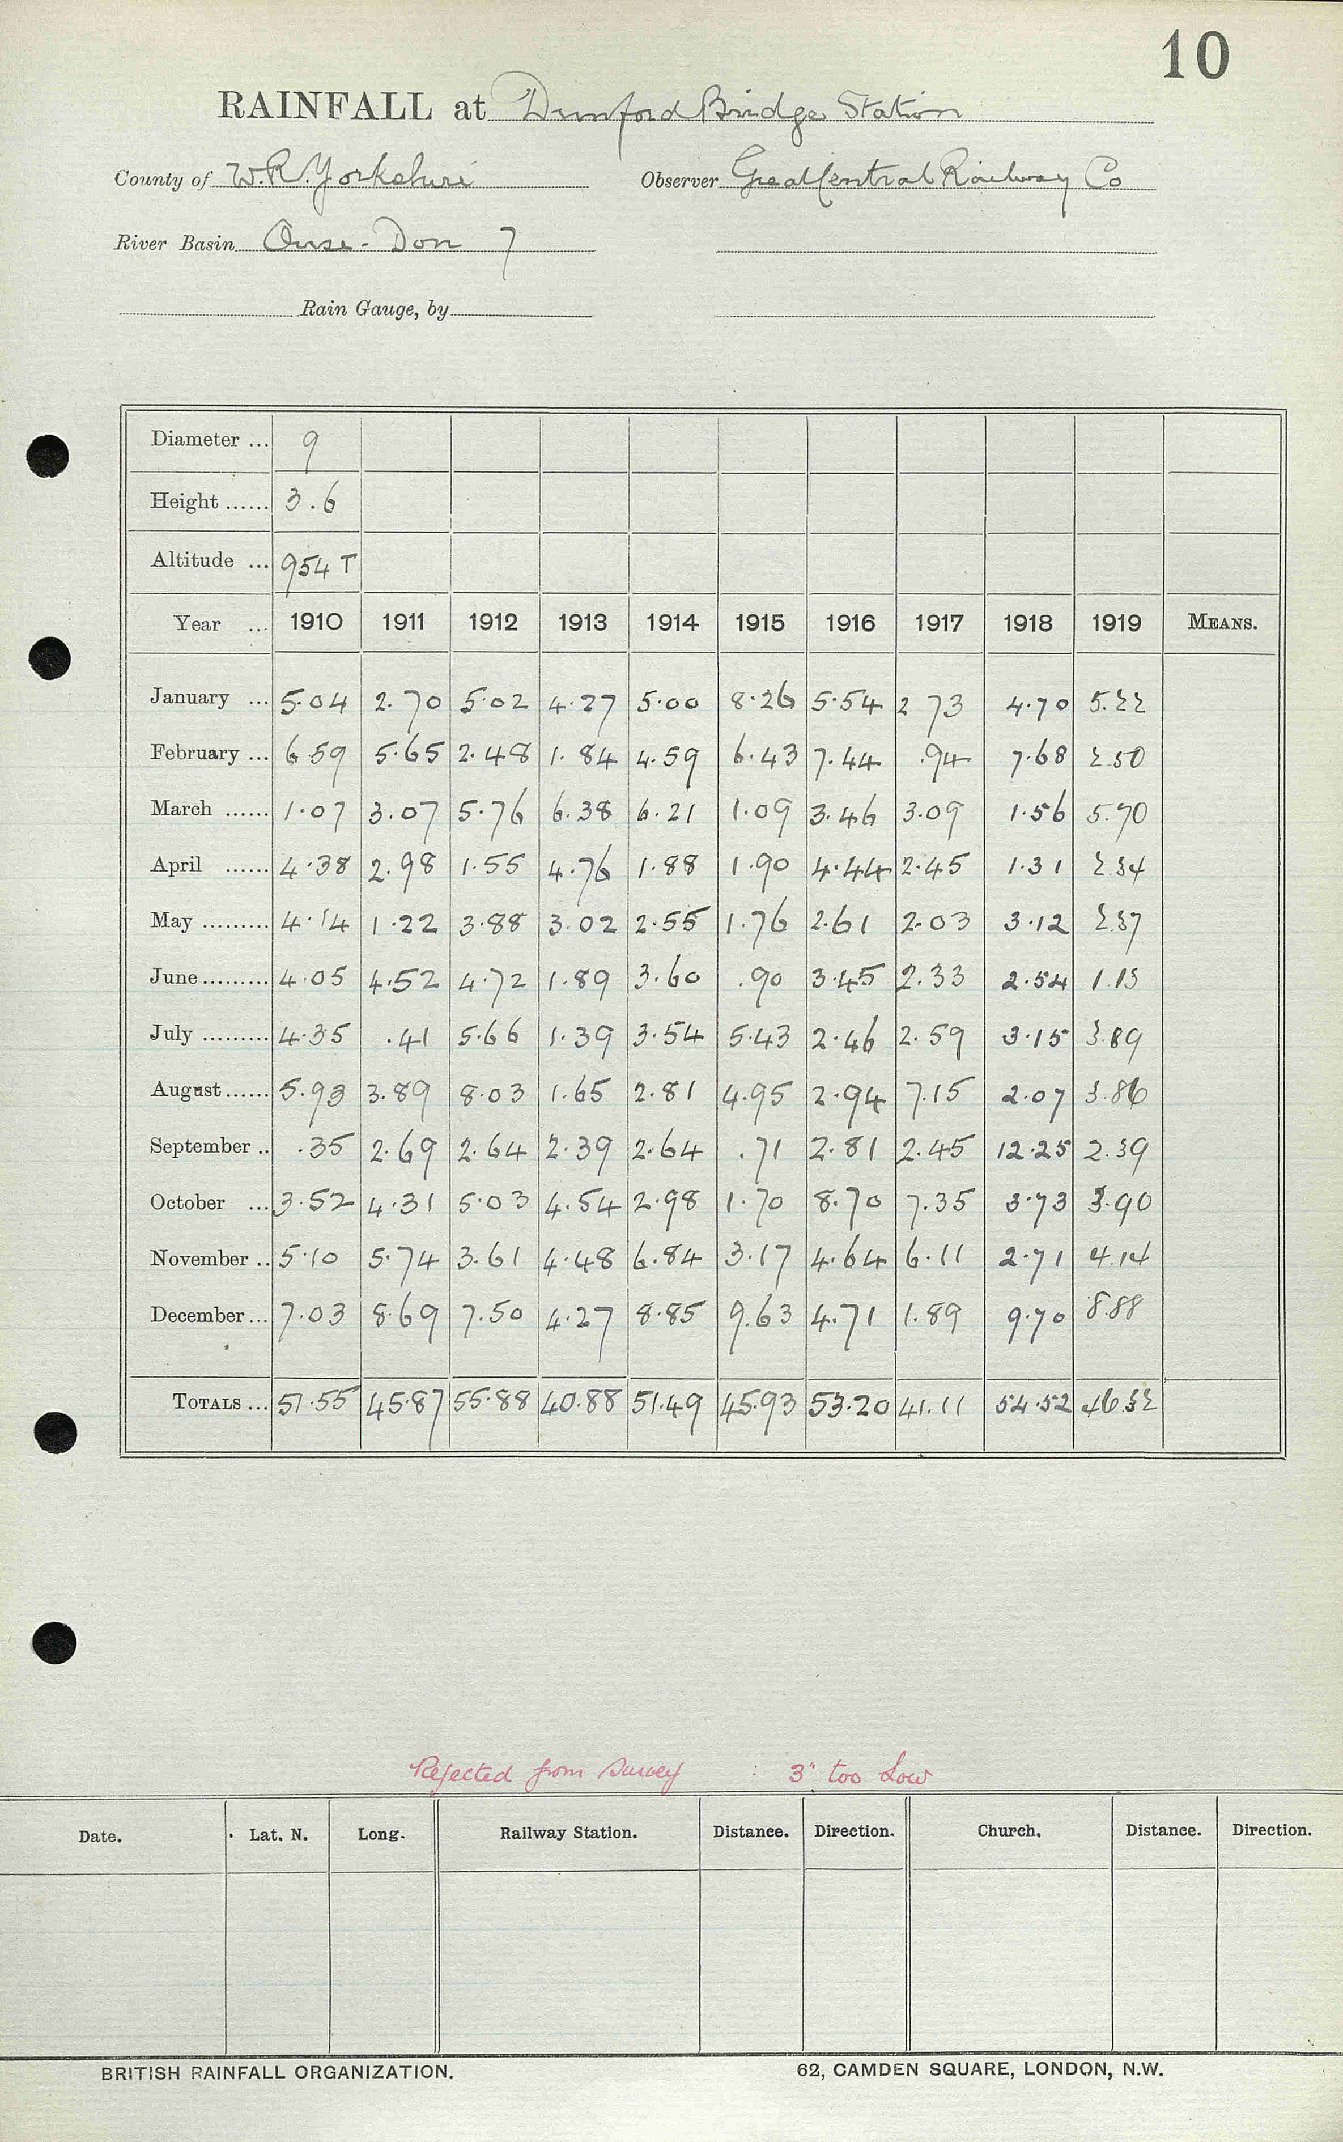 10
RAINFALL at Dunford Bridge Station
County of W.R. Yorkshire Observer Great Central Railway Co
River Basin Ouse - Don 7
Rain Gauge, by
Diameter ... 9
Height ...... 3.6
Altitude ... 954 T
Year ... 1910 1911 1912 1913 1914 1915 1916 1917 1918 1919 MEANS.
January ... 5.04 2.70 5.02 4.27 5.00 8.26 5.54 2 73 4.70 5.22
February ... 6 59 5.65 2.48 1.84 4.59 6.43 7.44 .94 7.68 2.50
March ...... 1.07 3.07 5.76 6.38 6.21 1.09 3.46 3.09 1.56 5.70
April ...... 4.38 2.98 1.55 4.76 1.88 1.90 4.44 2.45 1.31 2.34
May ......... 4.14 1.22 3.88 3.02 2.55 1.76 2.61 2.03 3.12 2.37
June ......... 4.05 4.52 4.72 1.89 3.60 .90 3.45 2.33 2.54 1.13
July ......... 4.35 .41 5.66 1.39 3.54 5.43 2.46 2.59 3.15 3.89
August ...... 5.93 3.89 8.03 1.65 2.81 4.95 2.94 7.15 2.07 3.86
September .. .35 2.69 2.64 2.39 2.64 .71 2.81 2.45 12.25 2.39
October ... 3.52 4.31 5.03 4.54 2.98 1.70 8.70 7.35 3.73 3.90
November .. 5.10 5.74 3.61 4.48 6.84 3.17 4.64 6.11 2.71 4.14
December ... 7.03 8.69 7.50 4.27 8.85 9.63 4.71 1.89 9.70 8.88
TOTALS ... 51.55 45.87 55.88 40.88 51.49 45.93 53.20 41.11 54.52 46.32
Rejected from survey : 3" too low
Date. Lat. N. Long. Railway Station. Distance. Direction. Church. Distance. Direction.
BRITISH RAINFALL ORGANIZATION. 62, CAMDEN SQUARE, LONDON, N.W.